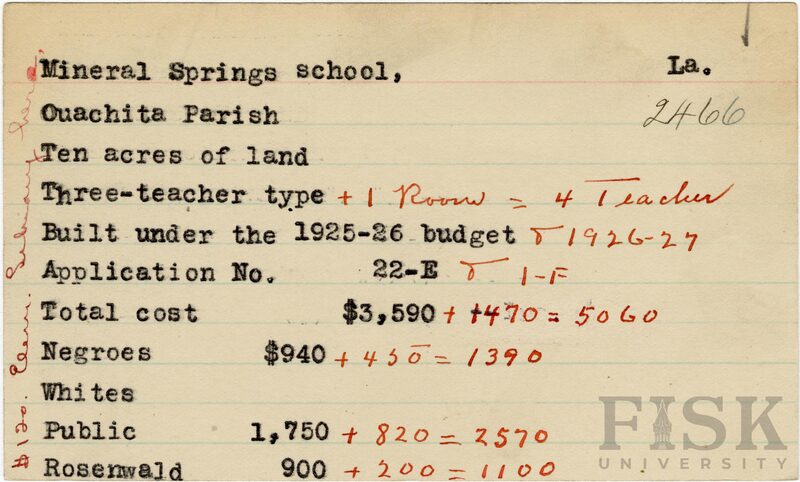 Mineral Springs school, La.
2466
Ouachita Parish
Ten acres of land
Three-teacher type + 1 Room = 4 Teacher
Built under the 1925-26 budget & 1926-27
Application No. 22-E & 1-F
Total cost $3,590 + 1470 = 5060
Negroes $940 + 450 = 1390
Whites
Public 1,750 + 820 = 2570
Rosenwald 900 + 200 = 1100
$120. Elem. Library
FISK
UNIVERSITY